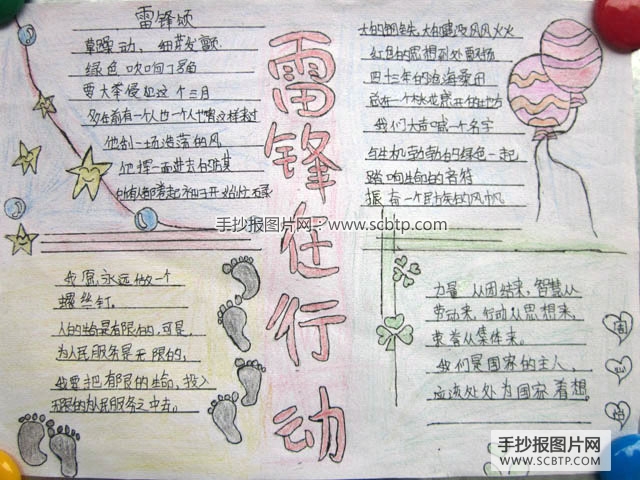 雷锋颂
草
绿色吹响了号角
要大举侵驻这个三月
多年前有一个人也一个人也曾这样来过
他刮一场浩荡的风
他挥一面进去的旗
大的钢铁、大的建设风风火火
红色的思想到处飘扬
四十三年的沧海桑田
总在一个桃花盛开的地方
我们大声喊一个名字
与生机勃勃的绿色一起
踏响生命的音符
振奋一个民族的风帆
雷锋在行动
手抄报图片网：www.scbtp.com
我愿永远做一个
螺丝钉。
人的生命是有限的,可是,
为人民服务是无限的,
我要把有限的生命,投入
无限的为人民服务之中去。
力量从团结来,智慧从
劳动来,行动从思想来,
荣誉从集体来。
我们是国家的主人,
应该处处为国家着想。
手抄报图片网
WWW.SCBTP.COM